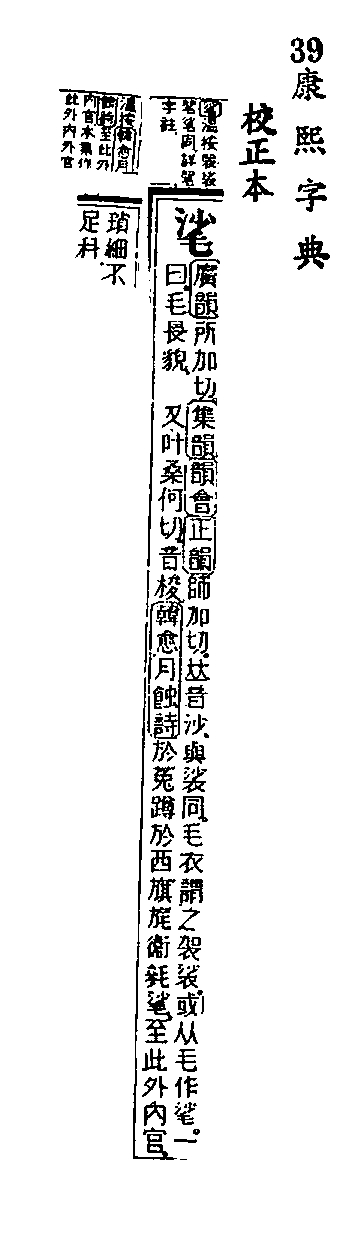 39
康熙字典
校正本
字註
㲚
廣韻所加切集韻韻會正韻師加切𠀤音沙與裟同。毛衣謂之袈裟。或从毛作㲚。一
曰毛長貌 又叶桑何切音梭韓愈月蝕詩於菟蹲於西旗旄衞毿㲚至此外內官
溫按韓愈月
蝕詩至此外
內官本集作
此外內外官
瑣細不
足科